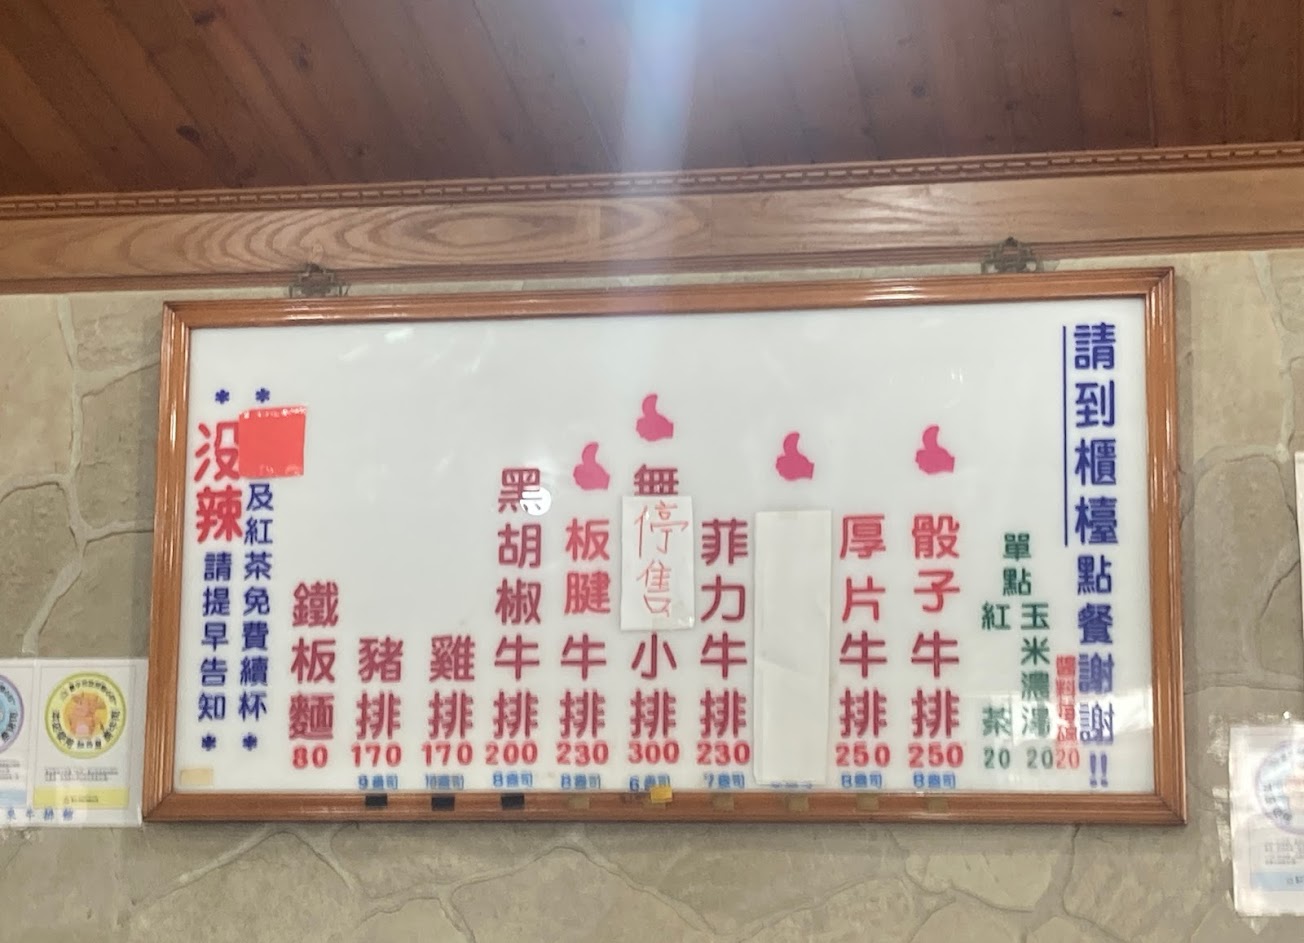 請到櫃檯點餐謝謝!!
醬料
20
單點
玉米濃湯
20
紅茶
20
骰子牛排
250
8盎司
厚片牛排
250
8盎司
菲力牛排
230
7盎司
無
停售
小排
300
6盎司
板腱牛排
230
8盎司
黑胡椒牛排
200
8盎司
雞排
170
10盎司
豬排
170
9盎司
鐵板麵
80
*
及紅茶免費續杯*
*沒辣請提早告知*